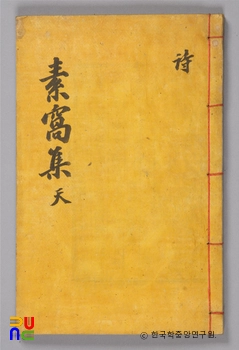 詩
素窩集 天
ⓒ 한국학중앙연구원